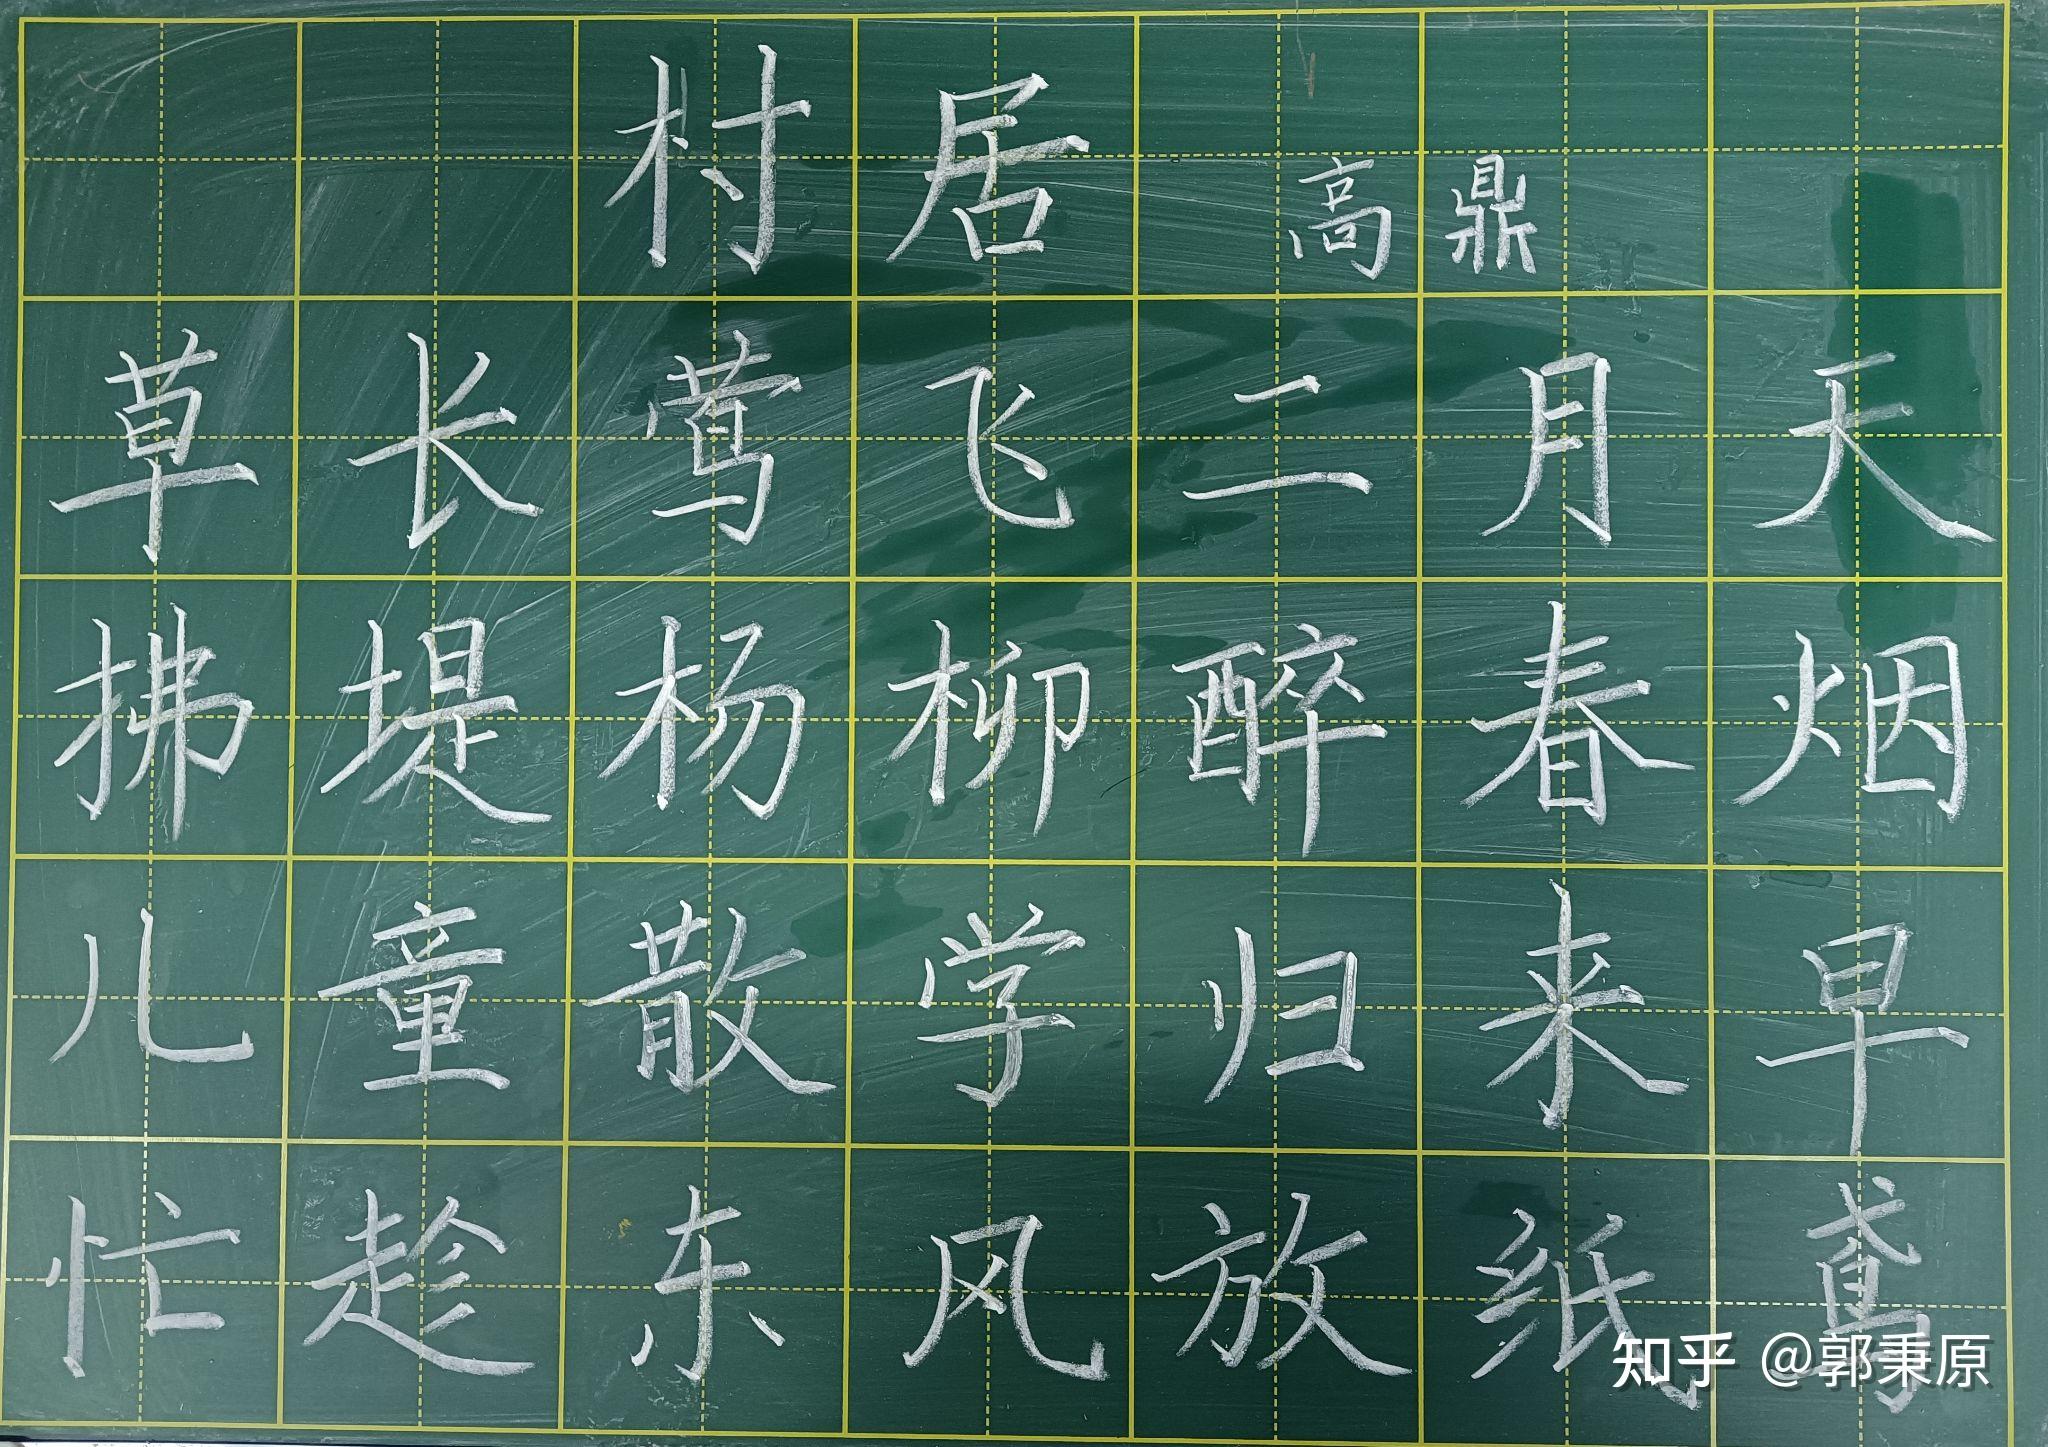 村居 高鼎
草长莺飞二月天
拂堤杨柳醉春烟
儿童散学归来早
忙趁东风放纸鸢
知乎 @郭秉原